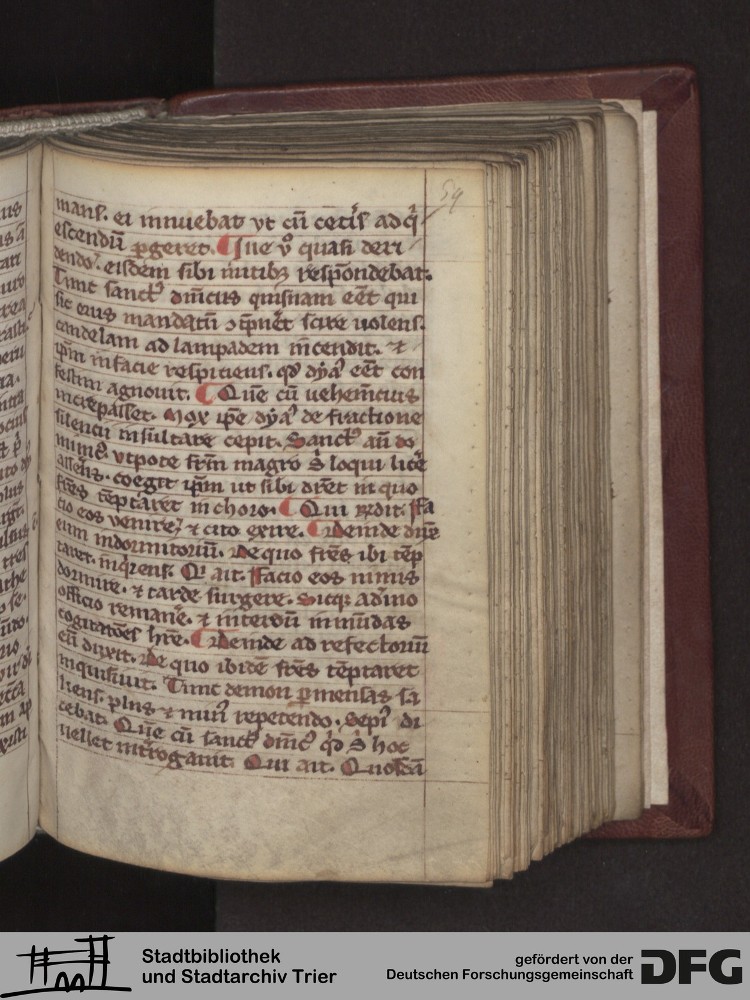 59
mans. ei innuebat vt cū cetīs ad q̄
escendū ꝑgeret. Ille v̊ quasi deri
dendo. eisdem sibi nutibꝫ respōndebat.
Tunc sanct᷒ dn̄icus quisnam eēt qui
sic eius mandatū ꝯtēpn̄et scire uolens.
candelam ad lampadem incendit. ⁊
ip̄m in facie respiciens. qd̓ dyā᷒ eēt con
festim agnouit. Quē cū uehemēcius
increpasset. Mox ip̄e dyā᷒ de fractione
silencii insultare cepit. Sanct᷒ aū do
minic᷒. vtpote frm̄ magrō s̄ loqui licē
asserens. coegit ip̄m ut sibi dīcet in quo
frēs tēptaret in choro. Qui rn̄dit. Fa
cio eos venire tarde ⁊ cito exire. Deinde dux̄
eum in dormitoriū. De quo frēs ibi tēp
taret. inq̇rens. Qui ait. Facio eos nimis
dormire. ⁊ tarde surgere. Sicqꝫ ad ino
officio remanē. ⁊ interdū inmūdas
cogitatōes hr̄e. Deinde ad refectoriū
eū duxit. De quo ibidē frēs tēptaret
inquisiuit. Tunc demon ꝑ mensas sa
liens. plus ⁊ min᷒ repetendo. sepi᷒ di
cebat. Quē cū sanct᷒ dn̄ic᷒ qd̓ s̄ hoc
uellet int̓rogauit. Qui ait. Quosdā
Stadtbibliothek
und Stadtarchiv Trier
gefördert von der
Deutschen Forschungsgemeinschaft
DFG